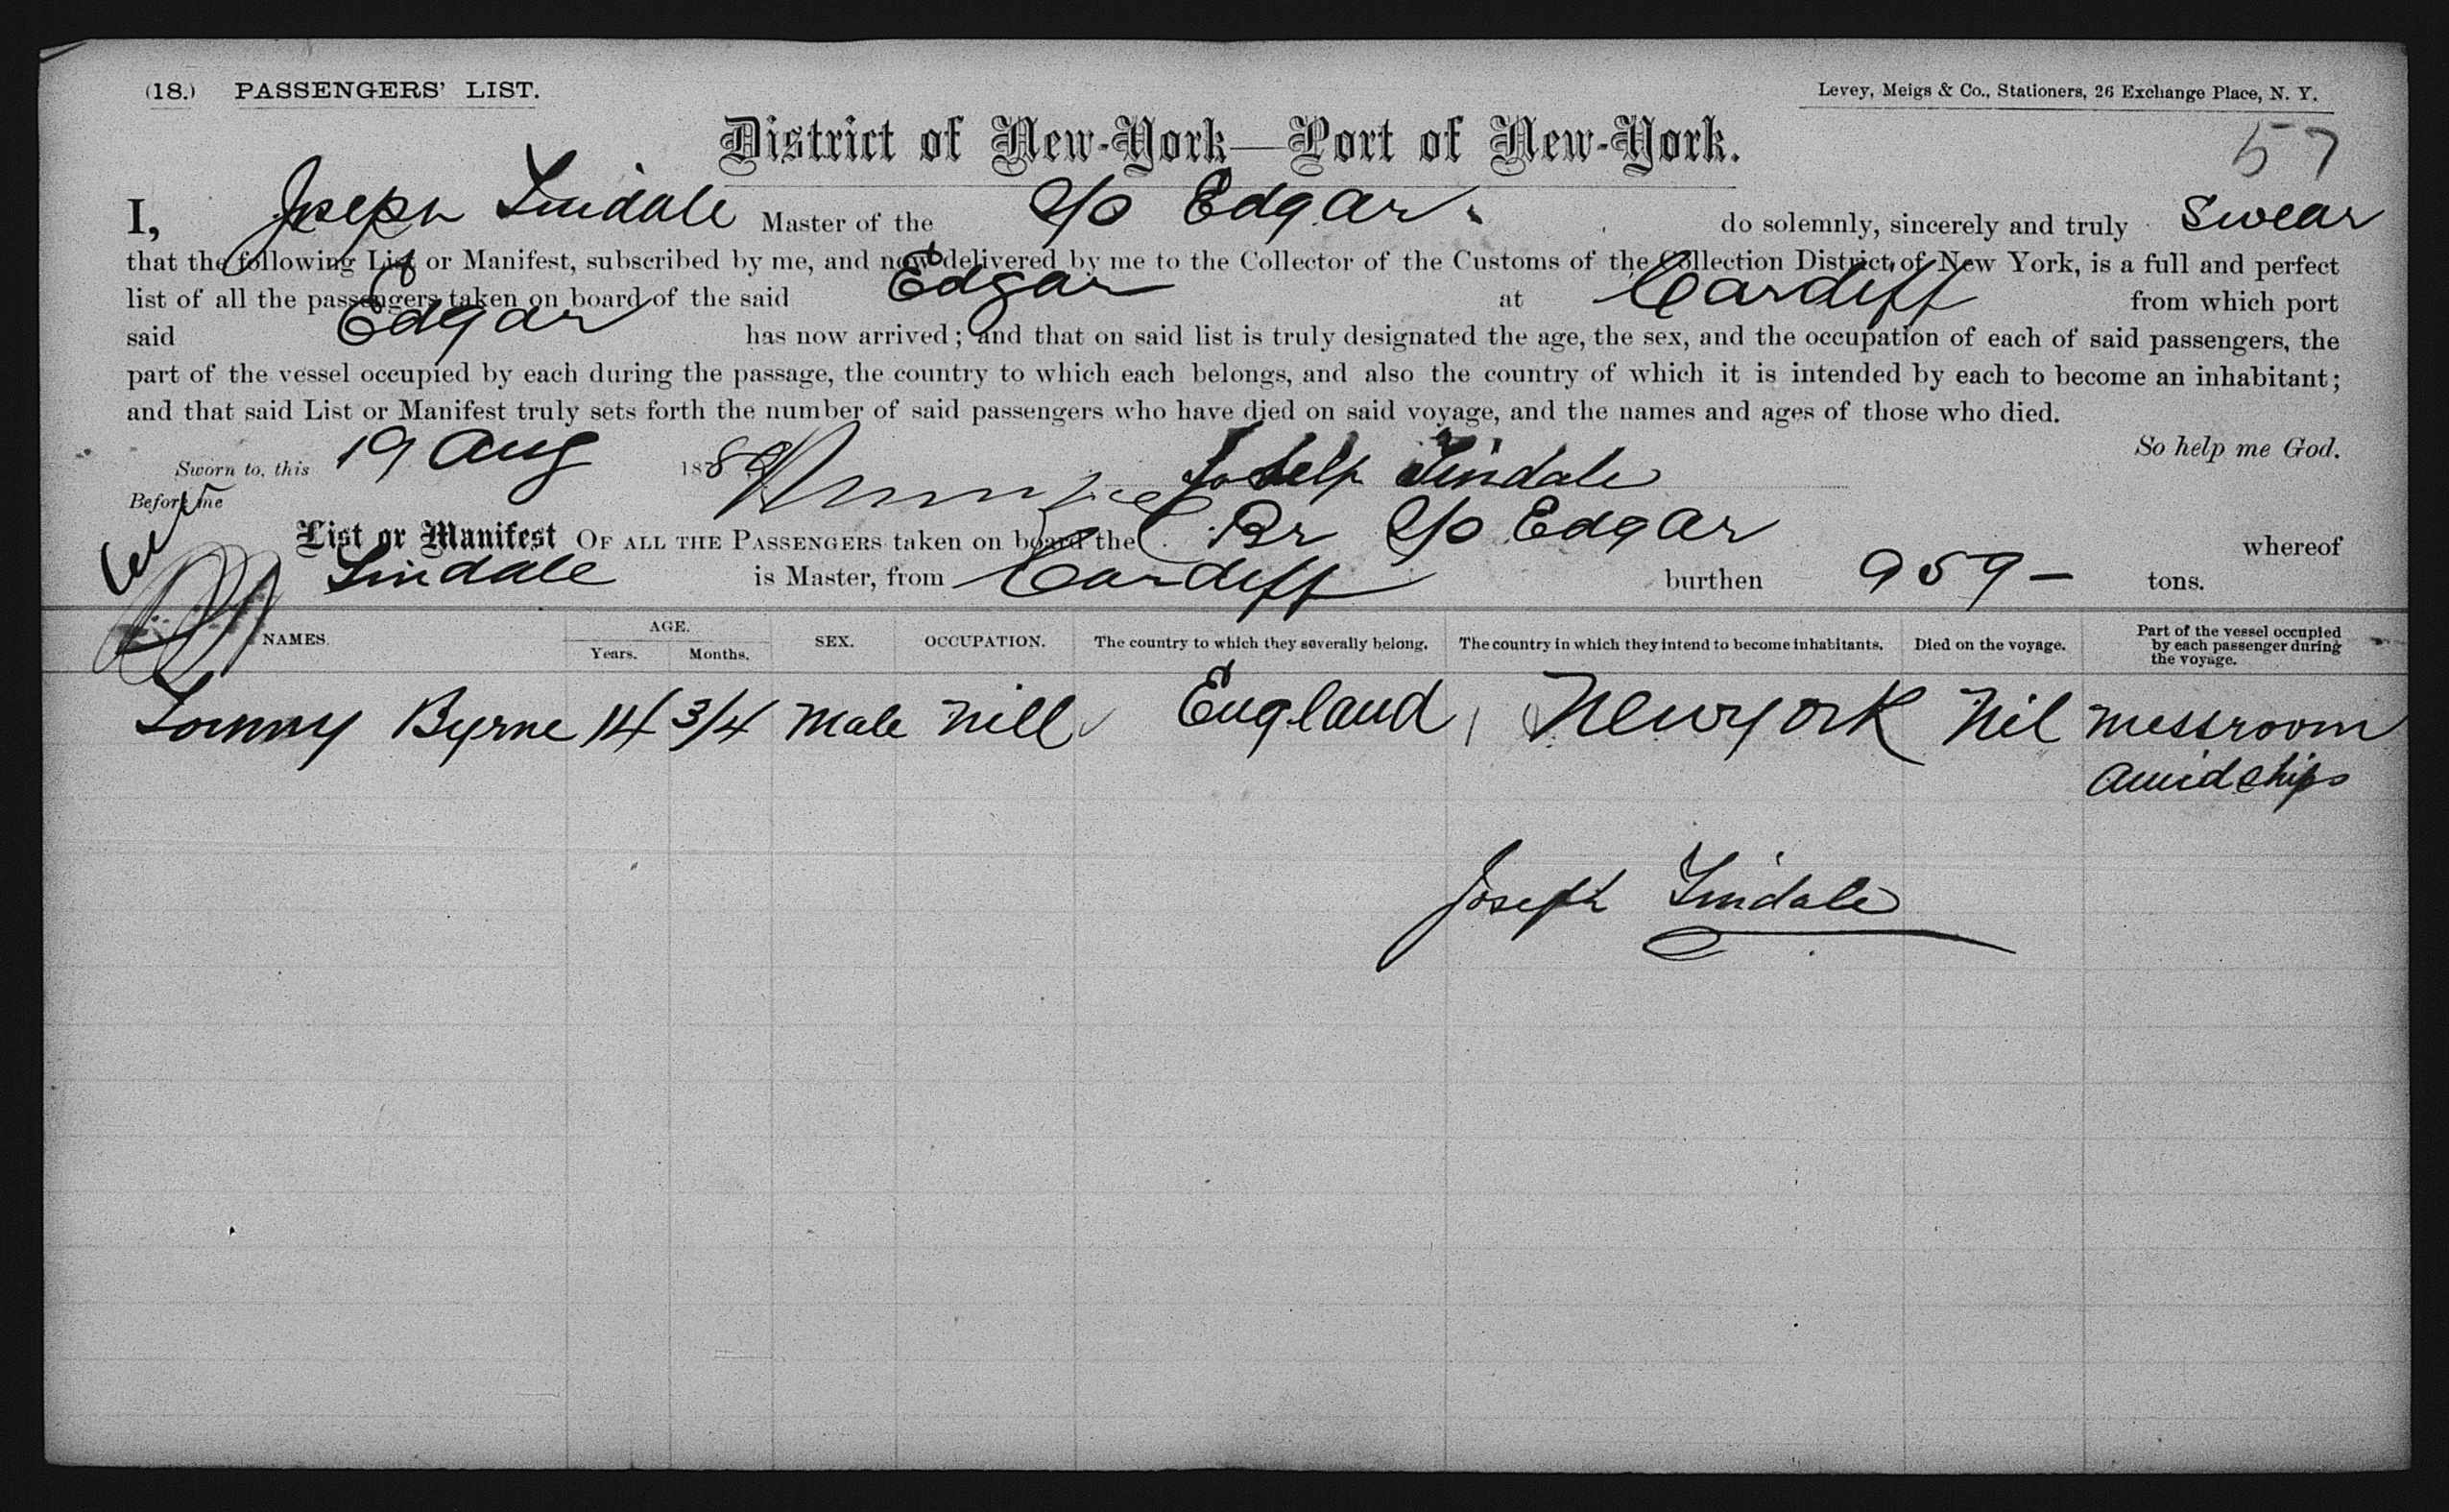 (18.) PASSENGERS' LIST.
Levey, Meigs & Co., Stationers, 26 Exchange Place, N. Y.
57
District of New-York—Port of New-York.
I, Joseph Tindale Master of the S/S Edgar. do solemnly, sincerely and truly swear
that the following List or Manifest, subscribed by me, and now delivered by me to the Collector of the Customs of the Collection District of New York, is a full and perfect
list of all the passengers taken on board of the said Edgar at Cardiff from which port
said Edgar has now arrived; and that on said list is truly designated the age, the sex, and the occupation of each of said passengers, the
part of the vessel occupied by each during the passage, the country to which each belongs, and also the country of which it is intended by each to become an inhabitant;
and that said List or Manifest truly sets forth the number of said passengers who have died on said voyage, and the names and ages of those who died.
So help me God.
Sworn to, this 19 Aug 1889 Joseph Tindale
Before me
List or Manifest OF ALL THE PASSENGERS taken on board the Br S/S Edgar whereof
Tindale is Master, from Cardiff burthen 959 — tons.
NAMES. AGE. Years. Months. SEX. OCCUPATION. The country to which they severally belong. The country in which they intend to become inhabitants. Died on the voyage. Part of the vessel occupied by each passenger during the voyage.
Tommy Byrne 14 3/4 Male Nill England Newyork Nil Messroom
amidships
Joseph Tindale